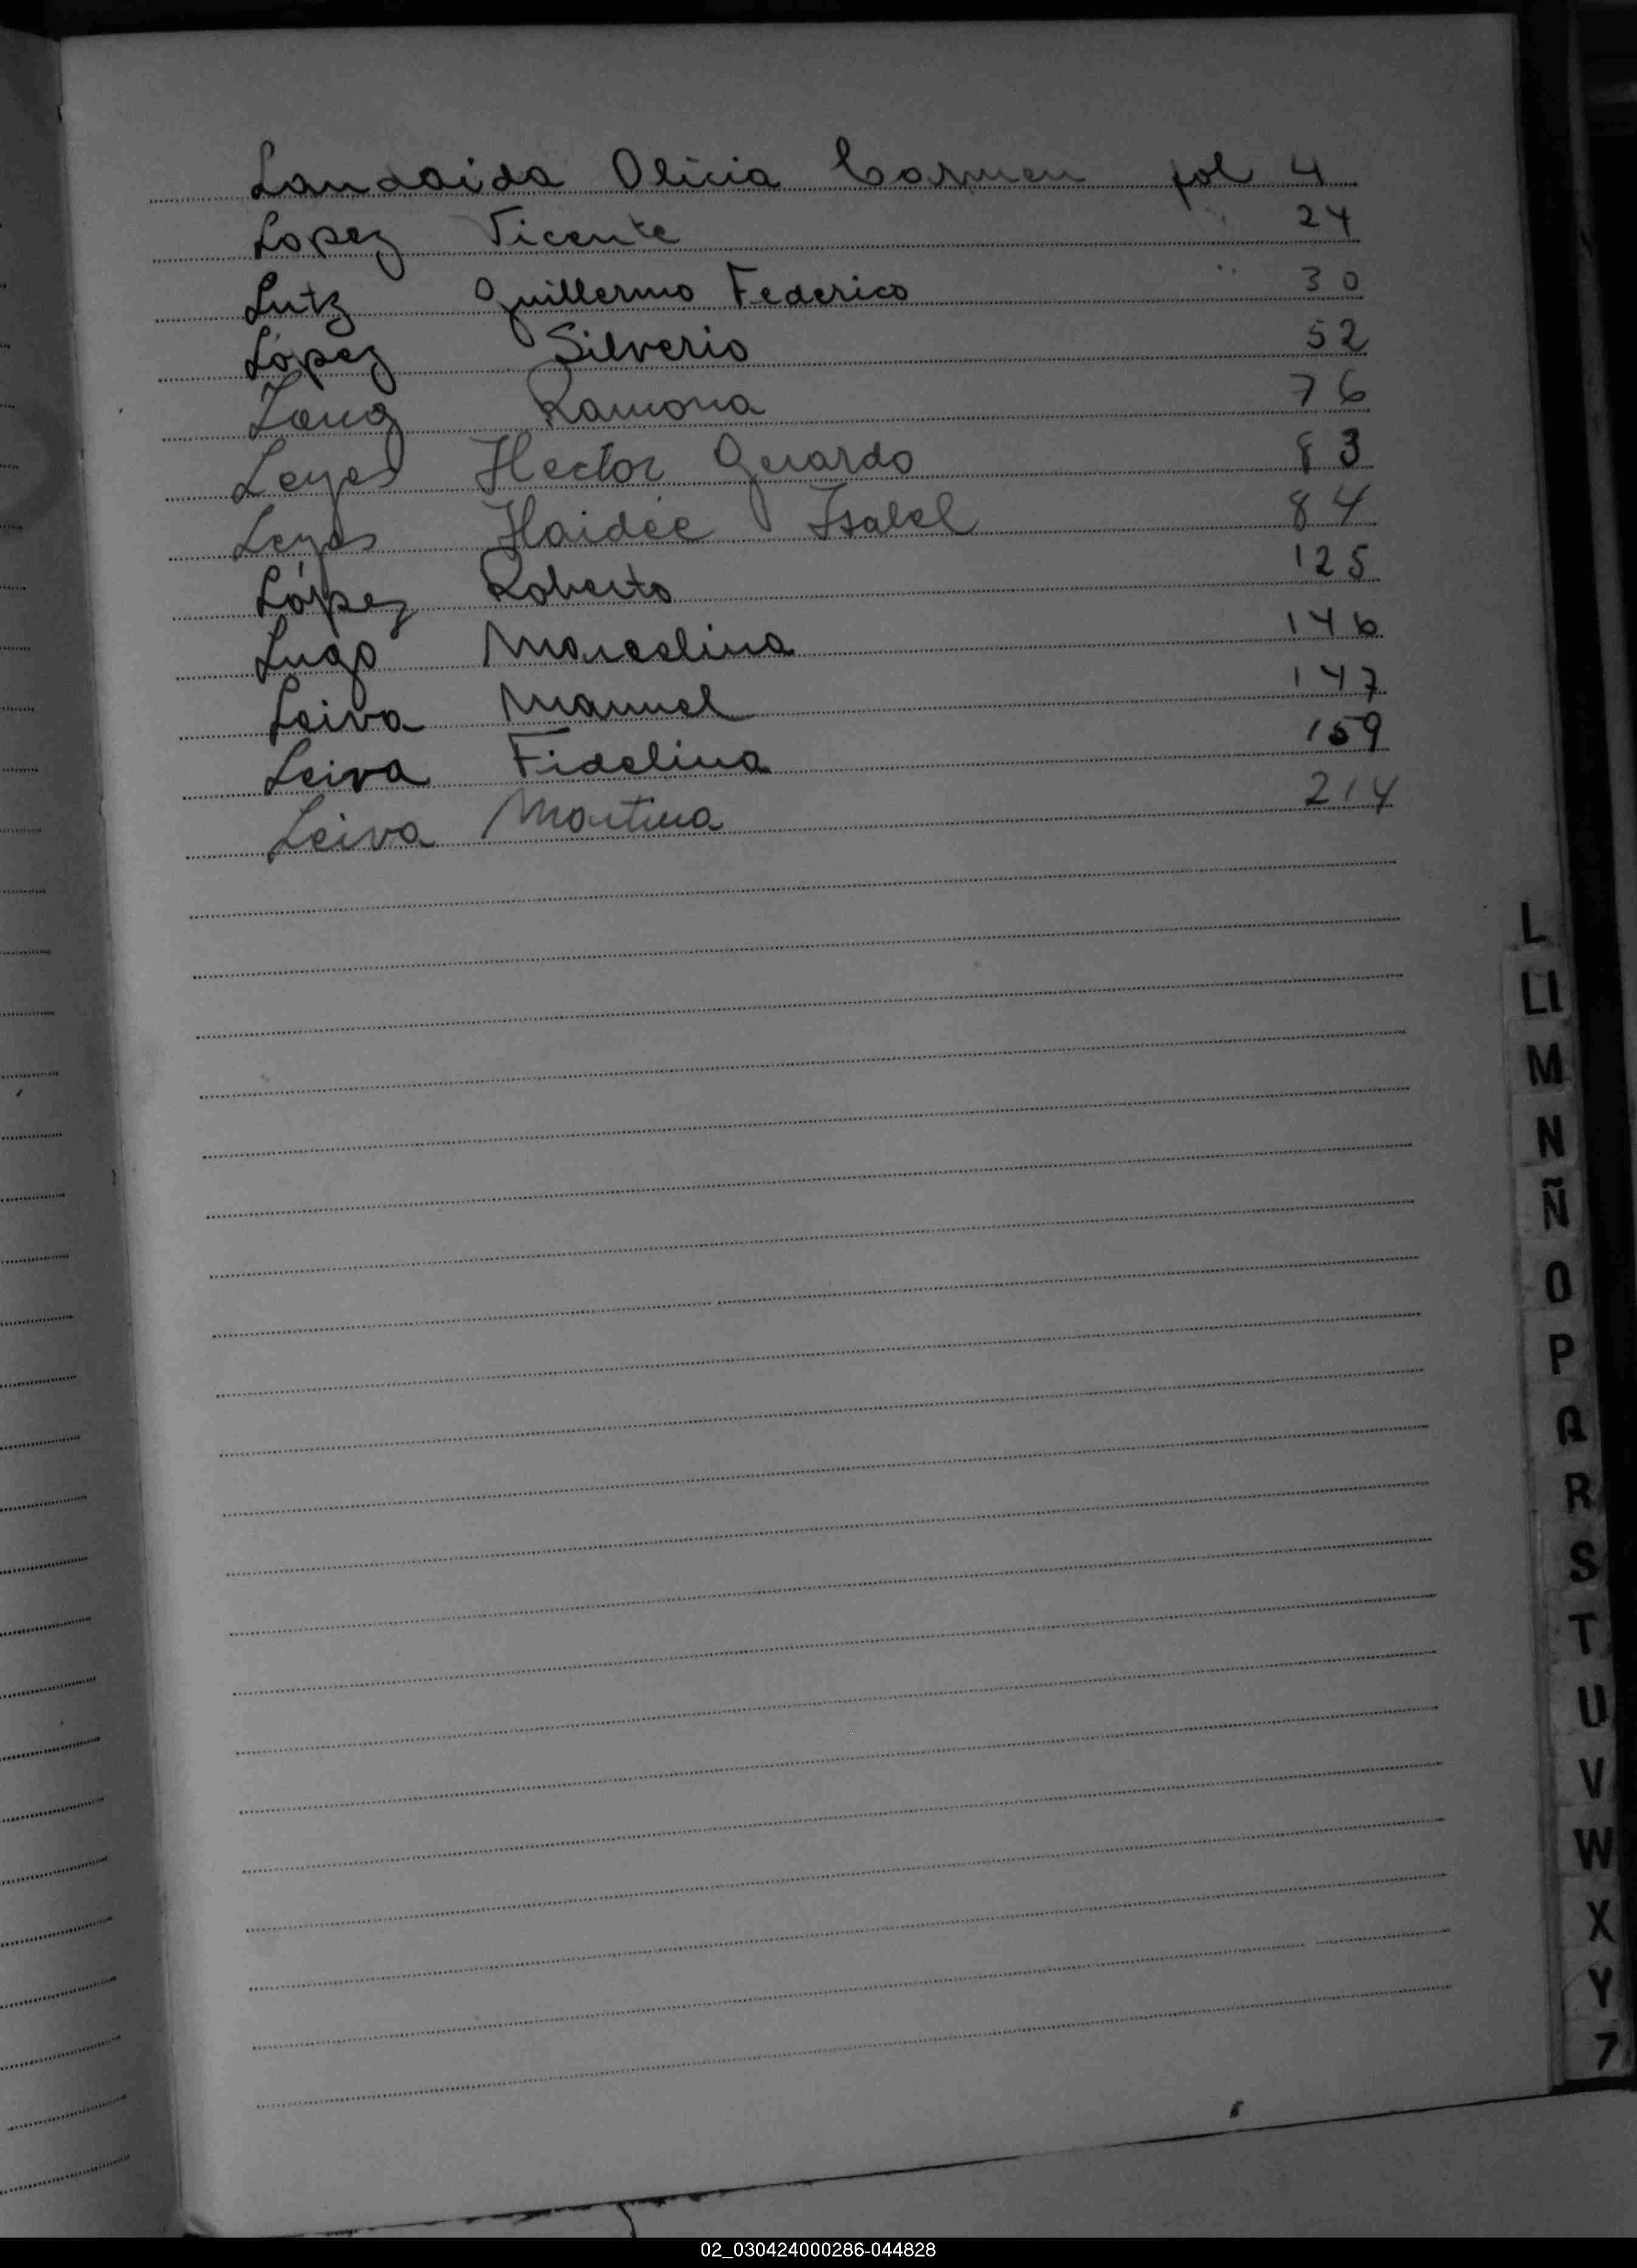 Landaida Olicia Carmen fol 4
Lopez Vicente " 24
Lutz Guillermo Federico " 30
López Silverio 52
Ramona 76
Leyes Hector Gerardo 83
Leyes Haidée Isabel 84
López Roberto 125
Lugo Marcelina 146
Leiva Manuel 147
Leiva Fidelina 159
Leiva Martina 214
L
Ll
M
N
Ñ
O
P
Q
R
S
T
U
V
W
X
Y
Z
02_030424000286-044828